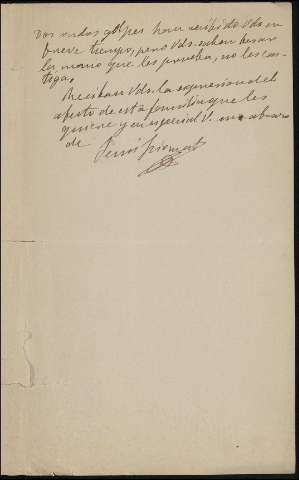 dos rudos golpes han recibido Vds en
breve tiempo, pero Vds. saben besar
la mano que les prueba, no les cas-
tiga.
Reciban Vds. la expresion del
afecto de esta familia que les
quiere y en especial V. un abrazo
de